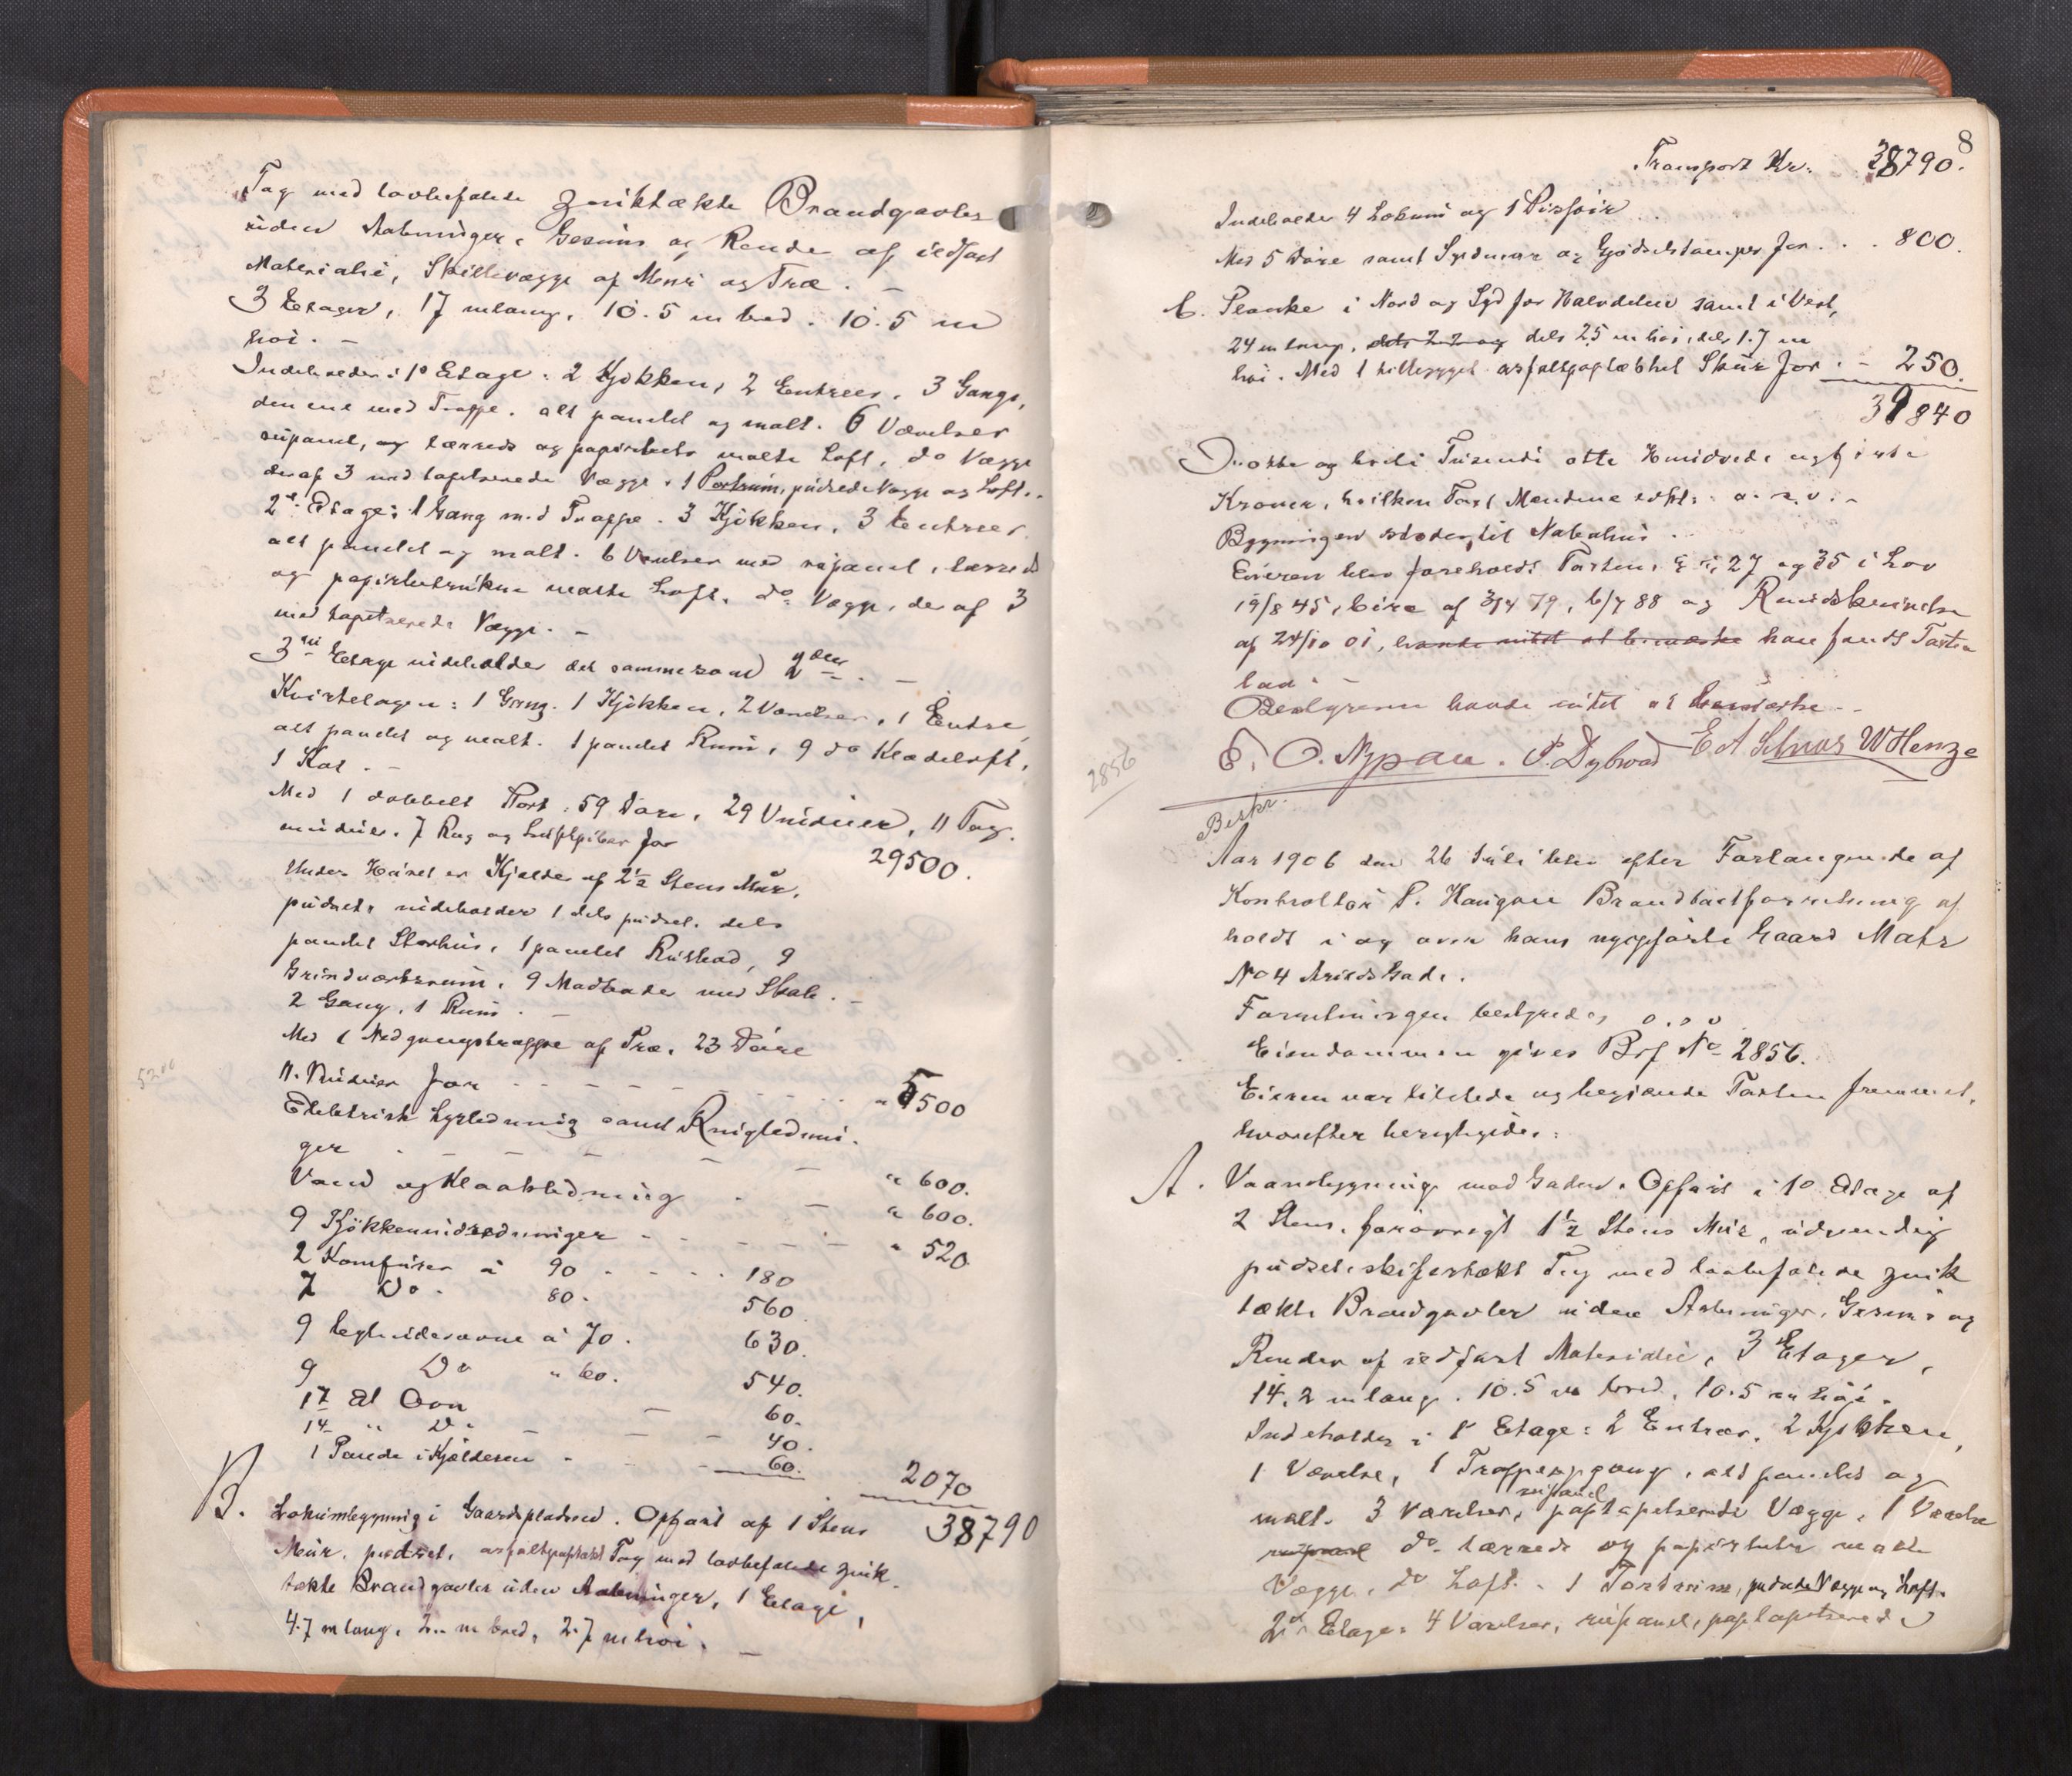 Tag med lovbefalede zinktækte Brandgavler
uden Aabninger, Gesims og Render af ildfast
Materiale, Skillevægge af Mur og Træ. -
3 Etager, 17 m lang, 10.5 m bred. 10.5 m
høi. -
Indeholder i 1ste Etage: 2 Kjøkken, 2 Entreer, 3 Gange,
den ene med Trappe, alt panelt og malt. 6 Værelser
rupanel, og lærreds og papirbetr malte Loft, do Vægge
deraf 3 med tapetserede Vægge. 1 Portrum, pudsede Vægge og Loft.
2den Etage: 1 Gang med Trappe. 3 Kjøkken, 3 Entreer
alt panelt og malt. 6 Værelser med rupanel, lærreds
og papirbetrukne malte Loft, do Vægge, deraf 3
med tapetserede Vægge. -
3die Etage indeholder det samme som 2den. -
Kvistetagen: 1 Gang. 1 Kjøkken, 2 Værelser, 1 Entre
alt panelt og malt. 1 panelt Rum, 9 do Klædeloft,
1 Kot. -
Med 1 dobbelt Port, 59 Døre, 29 Vinduer, 11 Tag
vinduer, 7 Røg og Luftpiber for 29500.
Under Huset er Kjelder af 2½ Stens Mur,
pudset, indeholder 1 dels pudset, dels
panelt Skovhus, 1 panelt Rulbod, 9
Grindværksrum, 9 Madboder med Skab. -
2 Gang, 1 Rum. -
Med 1 Nedgangstrappe af Træ, 23 Døre
11 Vinduer for " 5500
5200
Elektrisk Lysledning samt Ringlednin-
ger - - - - - - " 600.
Vand og Kloakledning - - " 600.
9 Kjøkkenindredninger - - - - " 520.
2 Komfurer à 90 - - - - 180
7 Do. 80. 560
9 Regluiderovne à 70. 630.
9 Do " 60. 540.
17 Al Ovn - 60.
14 " Do - - - 40.
1 Pande i Kjælderen - - - 60. 2070
38790
B. Lokumbygning i Gaardspladsen. Opført af 1 Stens
Mur, pudset, asfaltpaptækt Tag med lovbefalede zink
tækte Brandgavler uden Aabninger, 1 Etage,
4.7 m lang, 2.. m bred, 2.7 m høi. -
8
Transport Kr. 38790.
Indeholder 4 Lokum og 1 Pissoir
Med 5 Døre samt Sydmur og Gjødselsdamper for . . . 800.
C. Planke i Nord og Syd for Halvdelen samt i Vest,
24 m lang, dels 2.2 og dels 2.5 m høi, dels 1.7 m
høi. Med 1 tilbygget asfaltpaptækket Skur for . - 250.
39840
Otte og tredi Tusende otte Hundrede og firti
Kroner, hvilken Taxt Mændene vedt: o. s. v. -
Bygningen støder til Nabohus.
Eieren blev foreholdt Taxten, §§ 27 og 35 i Lov
19/8 45, Circ af 3/4 79, 6/7 88 og Rundskrivelse
af 24/10 01, havde intet at bemærke han fandt Taxten
lav. -
Bestyreren havde intet at bemærke. -
E. O. Nypan. P. Dybwad E A Schnas W Henze
2856
Beskr.
Aar 1906 den 26 Juli blev efter Forlangende af
Kontrollør P. Haugan Brandtaxtforretning af
holdt i og over hans nyopførte Gaard Matr
No 4 Arilds Gade.
Forretningen bestyredes o. s. v.
Eiendommen gives Brf No 2856.
Eieren var tilstede og begjærede Taxten fremmet,
hvorefter besigtigedes:
A. Vaanbygning mod Gaden. Opført i 1ste Etage af
2 Stens, forøvrigt 1½ Stens Mur, udvendig
pudset, skifertækt Tag med lovbefalede zink
tækte Brandgavler uden Aabninger, Gesims og
Render af ildfast Materiale, 3 Etager,
14.2 m lang. 10.5 m bred, 10.5 m høi.
Indeholder i 1ste Etage: 2 Entreer, 2 Kjøkken,
1 Værelse, 1 Trappeopgang, alt panelt og
malt. 3 Værelser, rupanel paptapetserede Vægge, 1 Værelse
rupanel do lærreds og papirbetr malte
Vægge, do Loft. 1 Portrum, pudsede Vægge og Loft.
2den Etage: 4 Værelser, rupanel, paptapetserede